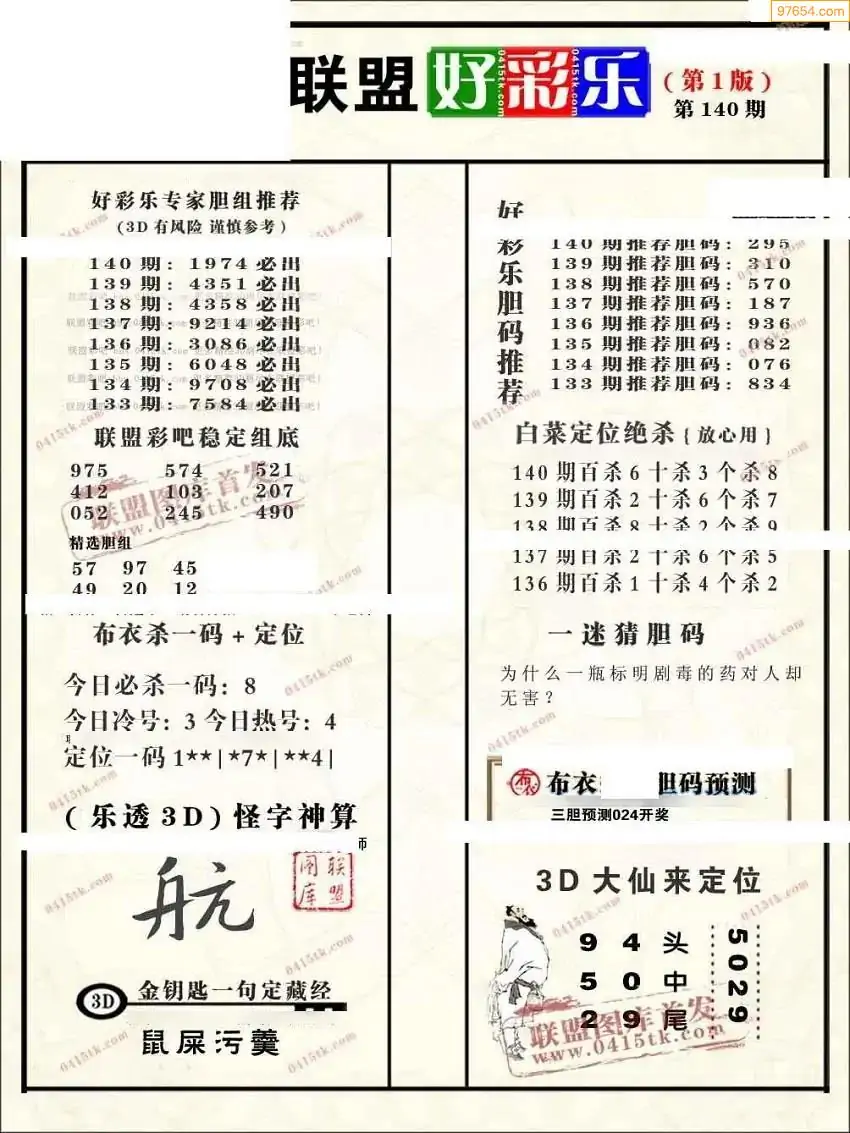 97654.com
联盟好彩乐
(第1版)
第140期
好彩乐专家胆组推荐
(3D有风险 谨慎参考)
140期: 1974必出
139期: 4351必出
138期: 4358必出
137期: 9214必出
136期: 3086必出
135期: 6048必出
134期: 9708必出
133期: 7584必出
联盟彩吧稳定组底
975 574 521
412 103 207
052 245 490
精选胆组
57 97 45
49 20 12
布衣杀一码+定位
今日必杀一码: 8
今日冷号: 3 今日热号: 4
定位一码 1**|*7*|**4|
(乐透3D)怪字神算
联盟图库
3D
金钥匙一句定藏经
鼠屎污羹
好彩乐胆码推荐
140期推荐胆码: 295
139期推荐胆码: 310
138期推荐胆码: 570
137期推荐胆码: 187
136期推荐胆码: 936
135期推荐胆码: 082
134期推荐胆码: 076
133期推荐胆码: 834
白菜定位绝杀{放心用}
140期百杀6十杀3个杀8
139期百杀2十杀6个杀7
138期百杀8十杀2个杀9
137期百杀2十杀6个杀5
136期百杀1十杀4个杀2
一迷猜胆码
为什么一瓶标明剧毒的药对人却
无害?
布衣 胆码预测
三胆预测024开奖
3D大仙来定位
9 4 头
5 0 中
2 9 尾
5029
联盟图库首发
www.0415tk.com
联盟图库首发
www.0415tk.com
0415tk.com